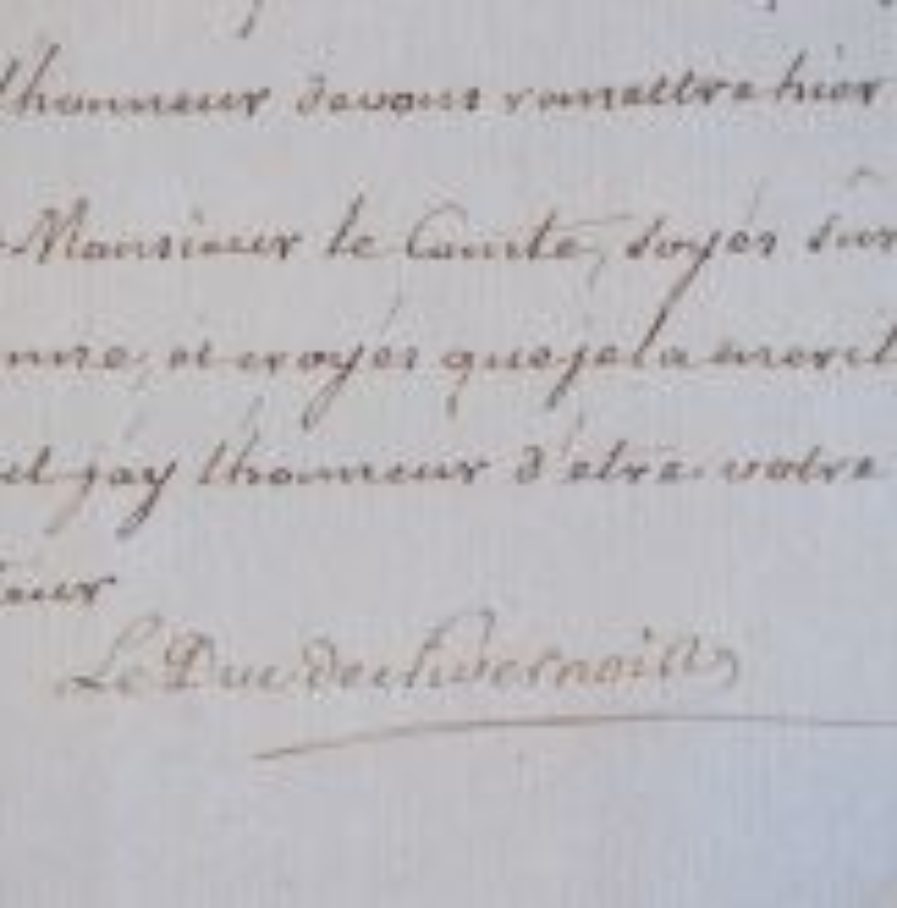 l'honneur de vous remettre hier
Monsieur le Comte, soyés sûr
nne, et croyés que je la merit
et j'ay l'honneur d'etre votre
teur
Le Duc de Nivernois